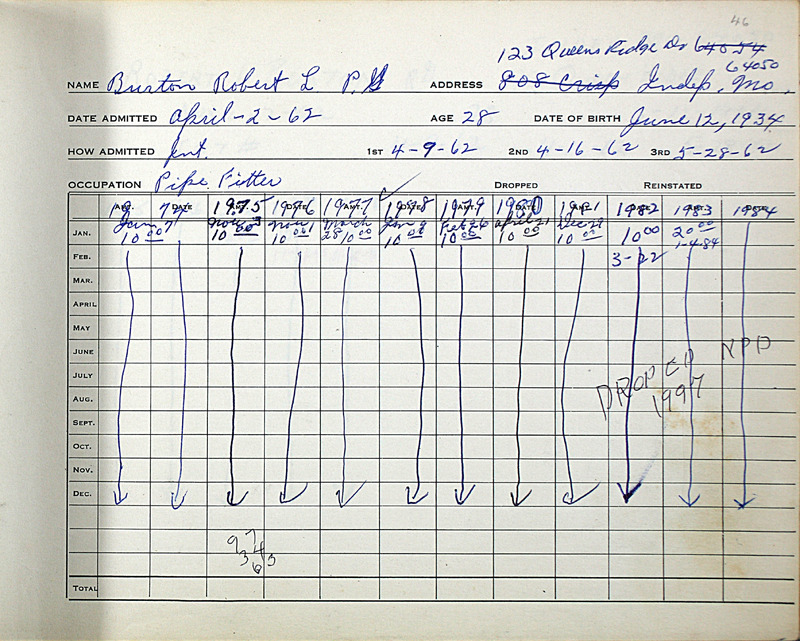 46
123 Queens Ridge Dr 64054
64050
NAME Burton Robert L P.G ADDRESS 808 Crisp Indep. Mo.
DATE ADMITTED april-2-62 AGE 28 DATE OF BIRTH June 12, 1934
HOW ADMITTED Int. 1ST 4-9-62 2ND 4-16-62 3RD 5-28-62
OCCUPATION Pipe Fitter DROPPED REINSTATED
AMT. DATE AMT. DATE AMT. DATE AMT. DATE AMT. DATE AMT. DATE
19 74 1975 1976 1977 1978 1979 1980 1981 1982 1983 1984
JAN. Jan 7 Nov 3 Nov 1 March 28 Jan Feb 26 april 21 Dec 29
10 00 10 00 10 00 10 00 10 00 10 00 10 00 10 00 10 00 20 00
1-4-84
FEB. 3-22
MAR.
APRIL
MAY
JUNE NPD
JULY DROPED
AUG. 1997
SEPT.
OCT.
NOV.
DEC.
97
343
63
TOTAL